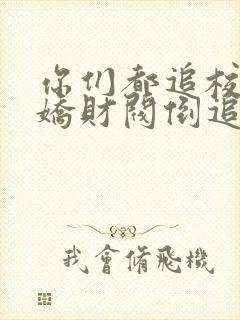 你们都追校
嬌財閥倒追
我會脩飛機